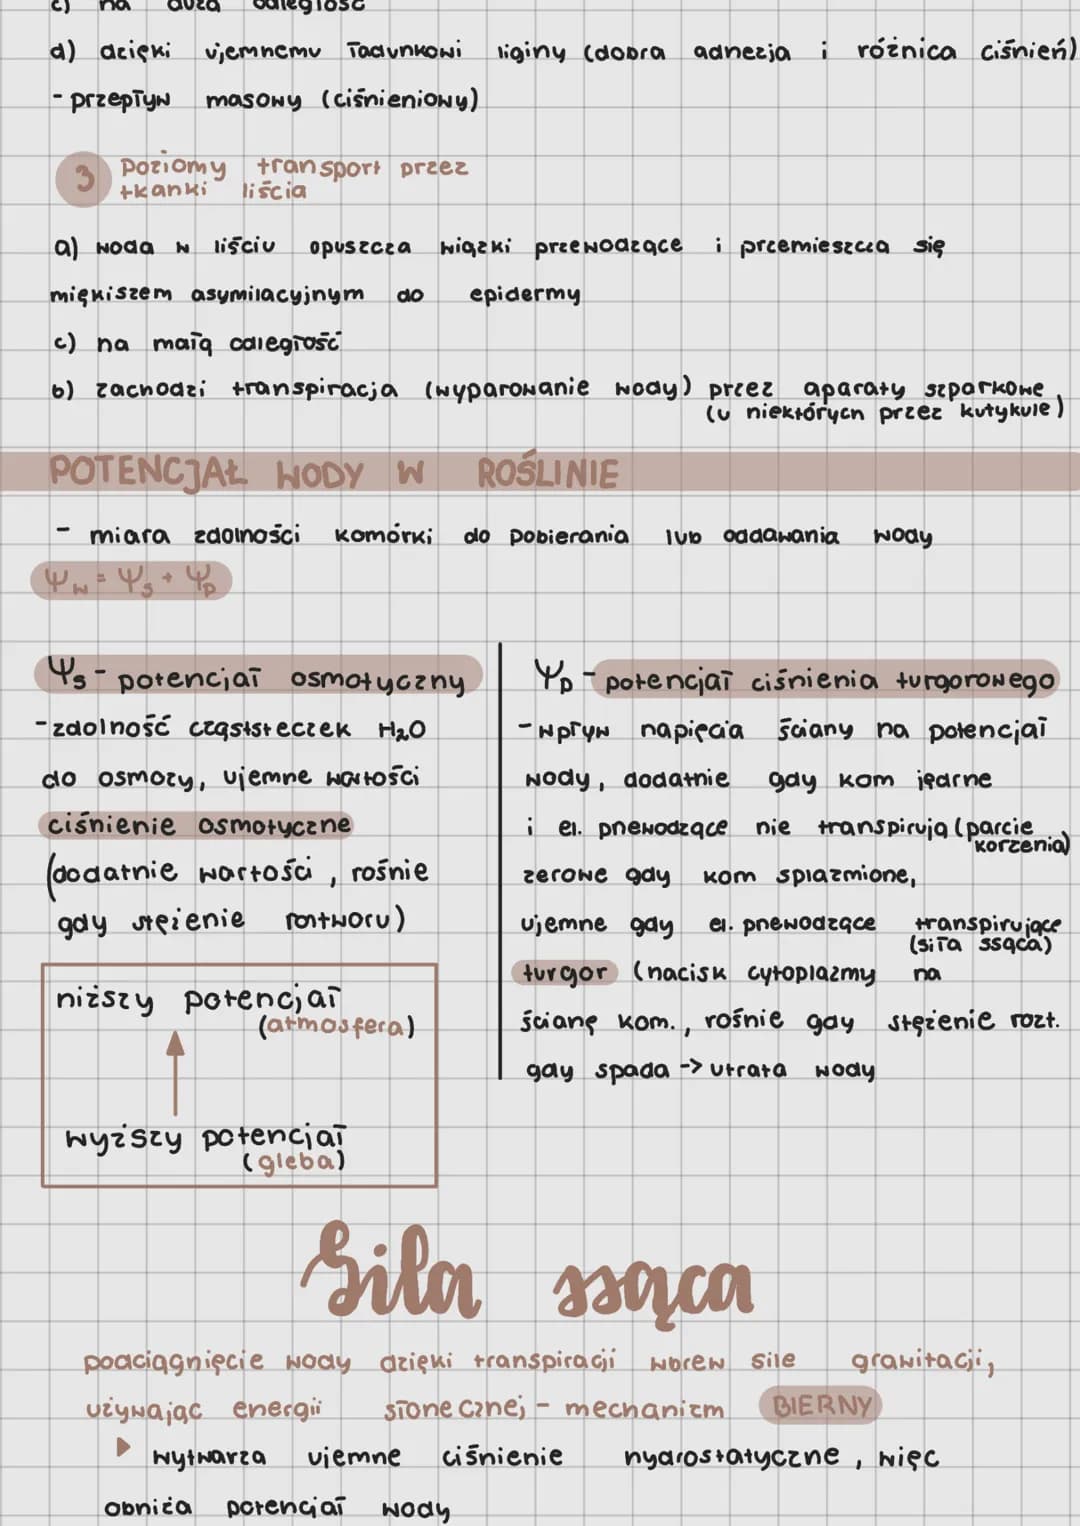 c) na dużą odległość
d) dzięki ujemnemu ładunkowi liginy (dobra adhezja i różnica ciśnień)
- przepływ masowy (ciśnieniowy)
3 Poziomy transport przez
tkanki liścia
a) woda w liściu opuszcza wiązki przewodzące i przemieszcza się
miękiszem asymilacyjnym do epidermy
c) na małą odległość
b) zachodzi transpiracja (wyparowanie wody) przez aparaty szparkowe
(u niektórych przez kutykule)
POTENCJAŁ WODY W ROŚLINIE
- miara zdolności komórki do pobierania lub oddawania wody
Ψw = Ψs + Ψp
Ψs - potencjał osmotyczny
- zdolność cząststeczek H₂O
do osmozy, ujemne wartości
ciśnienie osmotyczne
(dodatnie wartości, rośnie
gdy stężenie roztworu)
niższy potencjał
(atmosfera)
wyższy potencjał
(gleba)
Ψp - potencjał ciśnienia turgorowego
- wpływ napięcia ściany na potencjał
wody, dodatnie gdy kom jędrne
i el. przewodzące nie transpirują (parcie
korzenia)
zerowe gdy kom splazmione,
ujemne gdy el. przewodzące transpirujące
(siła ssąca)
turgor (nacisk cytoplazmy na
ścianę kom., rośnie gdy stężenie rozt.
gdy spada -> utrata wody
Siła ssąca
podciągnięcie wody dzięki transpiracji wbrew sile grawitacji,
używając energii słonecznej - mechanizm BIERNY
wytwarza ujemne ciśnienie hydrostatyczne, więc
obniża potencjał wody